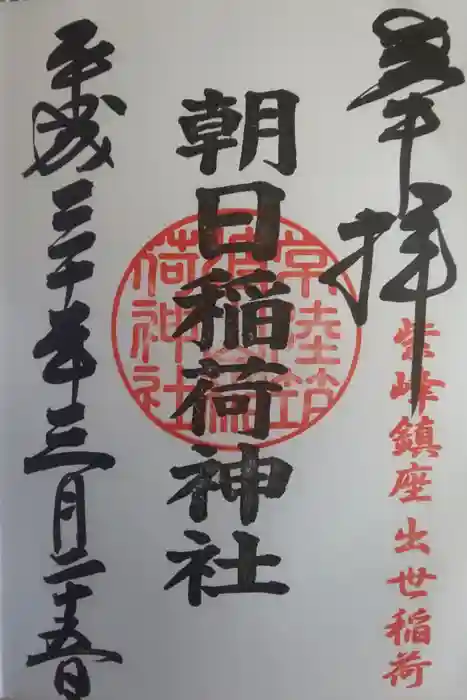 奉拝
紫峰鎮座出世稲荷
朝日稲荷神社
常陸筑
波山
荷神社
平成三十年三月二十五日